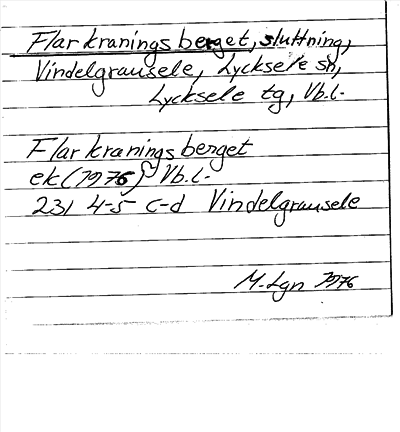 Flarkraningsberget, sluttning,
Vindelgransele, Lycksele sn,
Lycksele tg, Vb.l.
Flarkraningsberget
ek (1976) Vb.l.
23I 4-5 c-d Vindelgransele
M. Lgn 1976